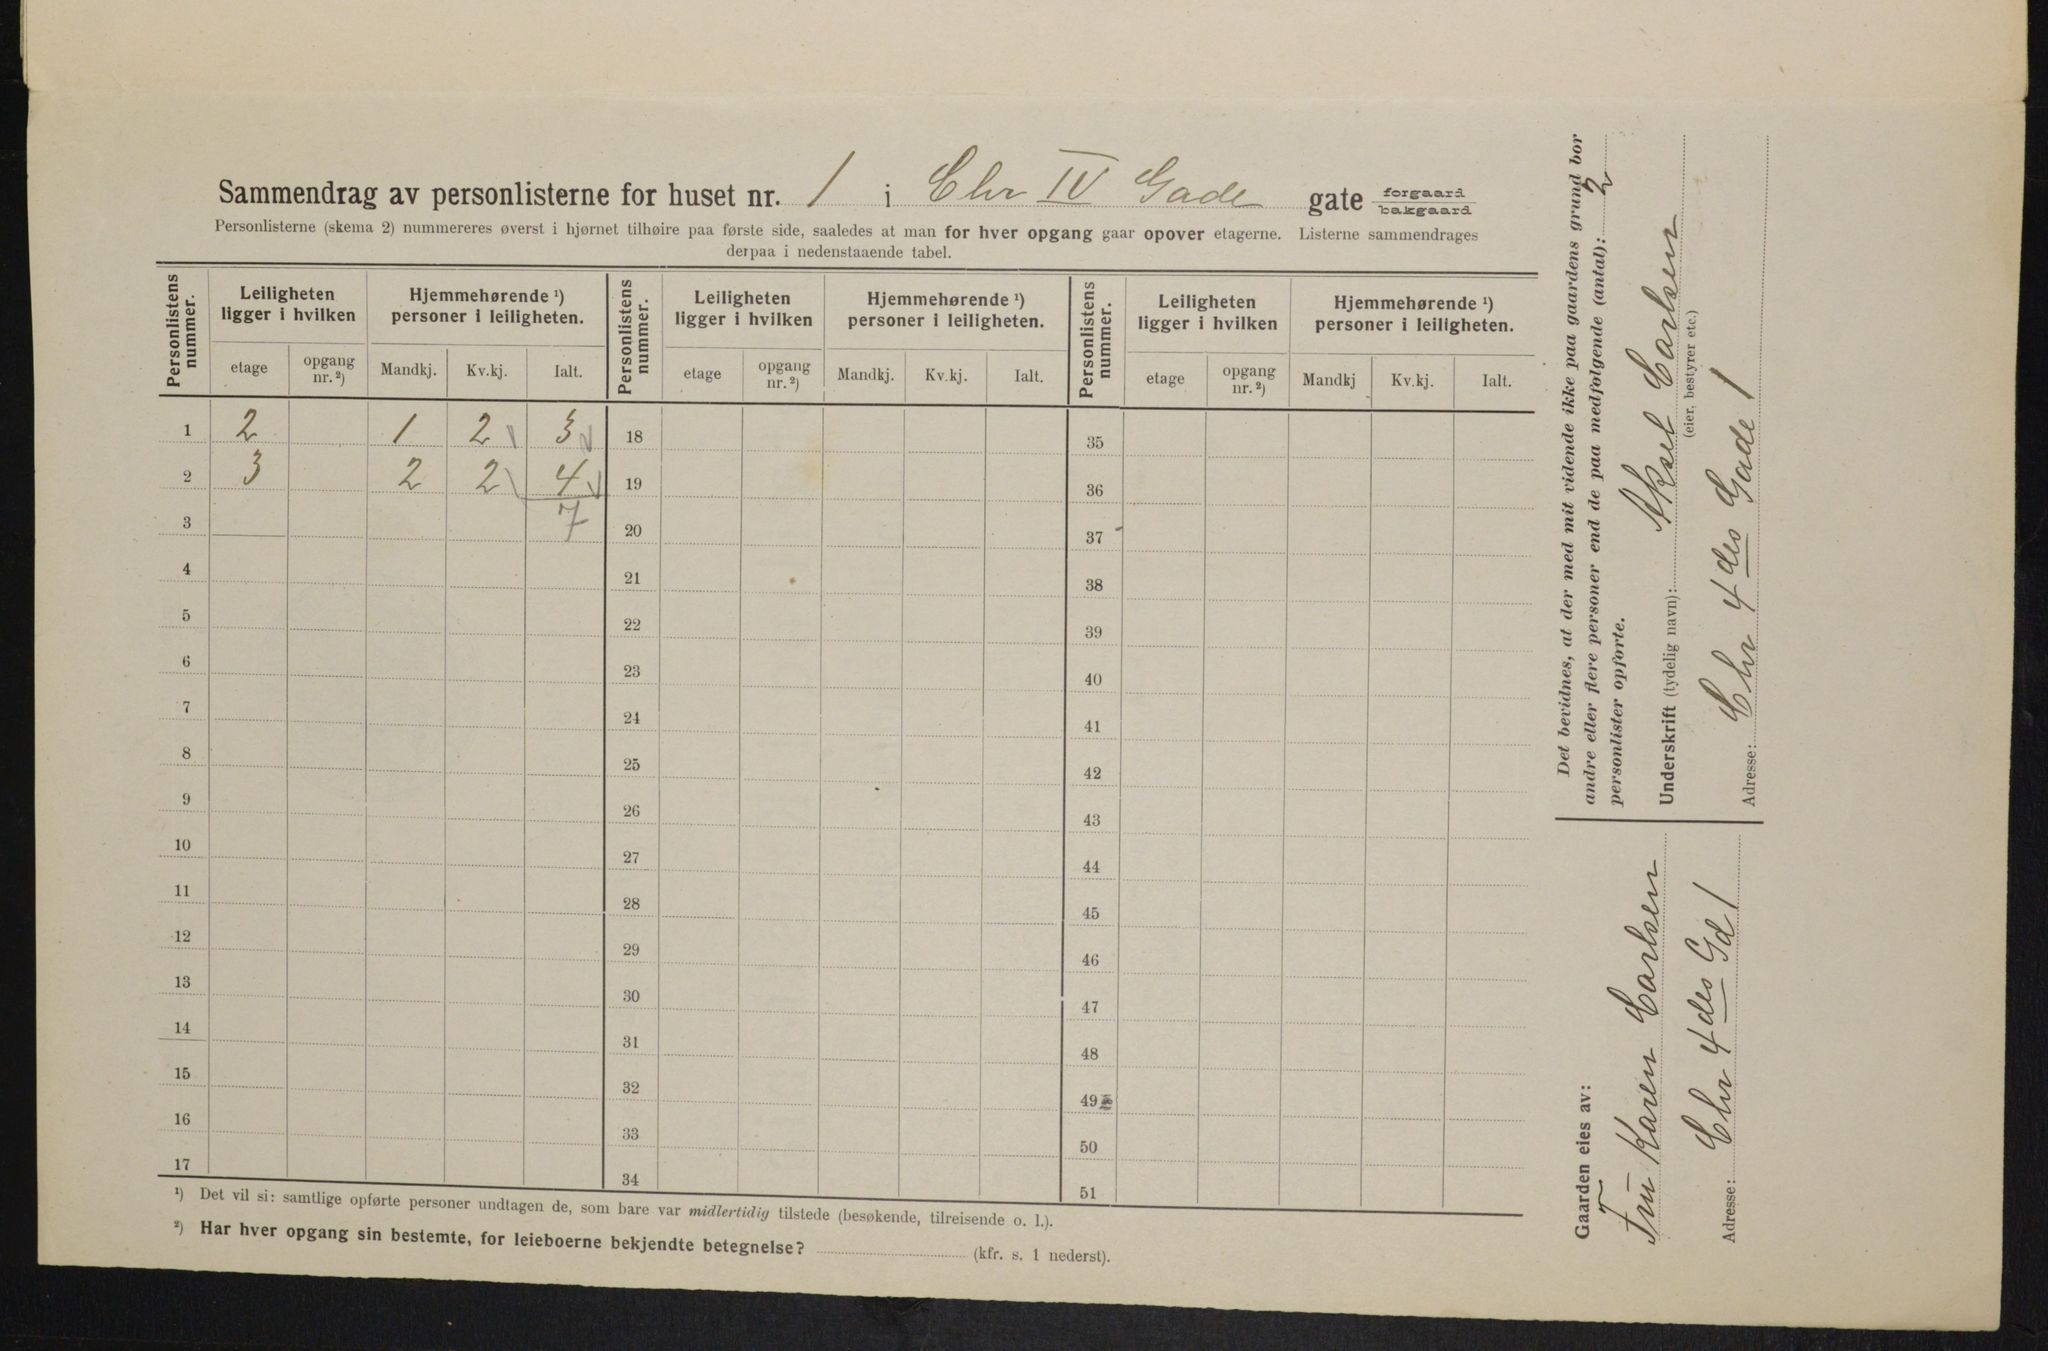 Sammendrag av personlisterne for huset nr. 1 i Chr IV Gade gate forgaard bakgaard
Personlisterne (skema 2) nummereres øverst i hjørnet tilhøire paa første side, saaledes at man for hver opgang gaar opover etagerne. Listerne sammendrages
derpaa i nedenstaaende tabel.
Personlistens nummer. Leiligheten ligger i hvilken Hjemmehørende ¹) personer i leiligheten. Personlistens nummer. Leiligheten ligger i hvilken Hjemmehørende ¹) personer i leiligheten. Personlistens nummer. Leiligheten ligger i hvilken Hjemmehørende ¹) personer i leiligheten.
etage opgang nr. ²) Mandkj. Kv.kj. Ialt. etage opgang nr. ²) Mandkj. Kv.kj. Ialt. etage opgang nr. ²) Mandkj Kv.kj. Ialt.
1 2 1 2 3 18 35
2 3 2 2 4 19 36
3 7 20 37
4 21 38
5 22 39
6 23 40
7 24 41
8 25 42
9 26 43
10 27 44
11 28 45
12 29 46
13 30 47
14 31 48
15 32 49
16 33 50
17 34 51
¹) Det vil si: samtlige opførte personer undtagen de, som bare var midlertidig tilstede (besøkende, tilreisende o. l.).
²) Har hver opgang sin bestemte, for leieboerne bekjendte betegnelse? (kfr. s. 1 nederst).
Det bevidnes, at der med mit vidende ikke paa gaardens grund bor
andre eller flere personer end de paa medfølgende (antal): 2
personlister opførte.
Underskrift (tydelig navn): Aksel Carlsen
(eier, bestyrer etc.)
Adresse: Chr 4des Gade 1
Gaarden eies av:
Fru Karen Carlsen
Adresse: Chr 4des Gd 1